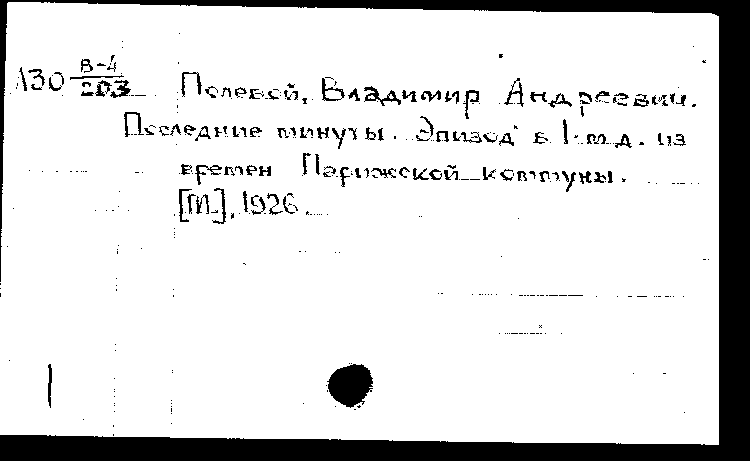 130 В-4/203
Полевой, Владимир Андреевич.
Последние минуты. Эпизод в 1 м. д. из
времен Парижской коммуны.
[М.], 1926.